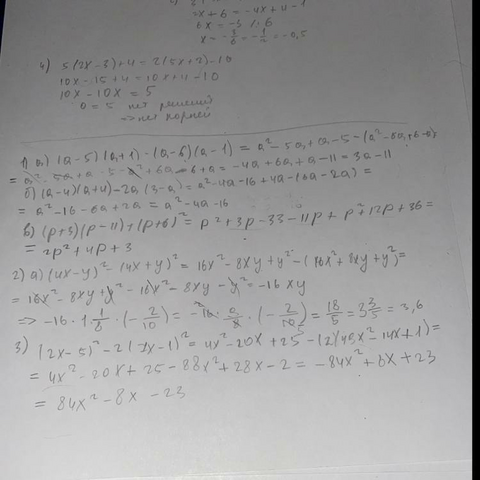 x + 6 = -4x + 4 - 1
6x = -3 /:6
x = -3/6 = -1/2 = -0,5
4) 5(2x-3)+4 = 2(5x+2)-10
10x - 15 + 4 = 10x + 4 - 10
10x - 10x = 5
0 = 5 нет решений
=> нет корней
1) а) (a-5)(a+1) - (a-6)(a-1) = a² - 5a + a - 5 - (a² - 6a + 6 - a) =
= a² - 5a + a - 5 - a² + 6a - 6 + a = -4a + 6a + a - 11 = 3a - 11
б) (a-4)(a+4) - 2a(3-a) = a² - 4a - 16 + 4a - (6a - 2a) =
= a² - 16 - 6a + 2a = a² - 4a - 16
в) (p+3)(p-11) + (p+6)² = p² + 3p - 33 - 11p + p² + 12p + 36 =
= 2p² + 4p + 3
2) а) (4x-y)² - (4x+y)² = 16x² - 8xy + y² - (16x² + 8xy + y²) =
= 16x² - 8xy + y² - 16x² - 8xy - y² = -16xy
3) (2x-5)² - 2(7x-1)² = 4x² - 20x + 25 - (2)(49x² - 14x + 1) =
= 4x² - 20x + 25 - 88x² + 28x - 2 = -84x² + 8x + 23
= 84x² - 8x - 23